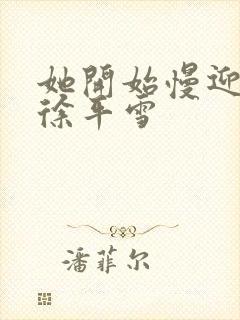 她開始慢迎
徐年雪
潘菲尔